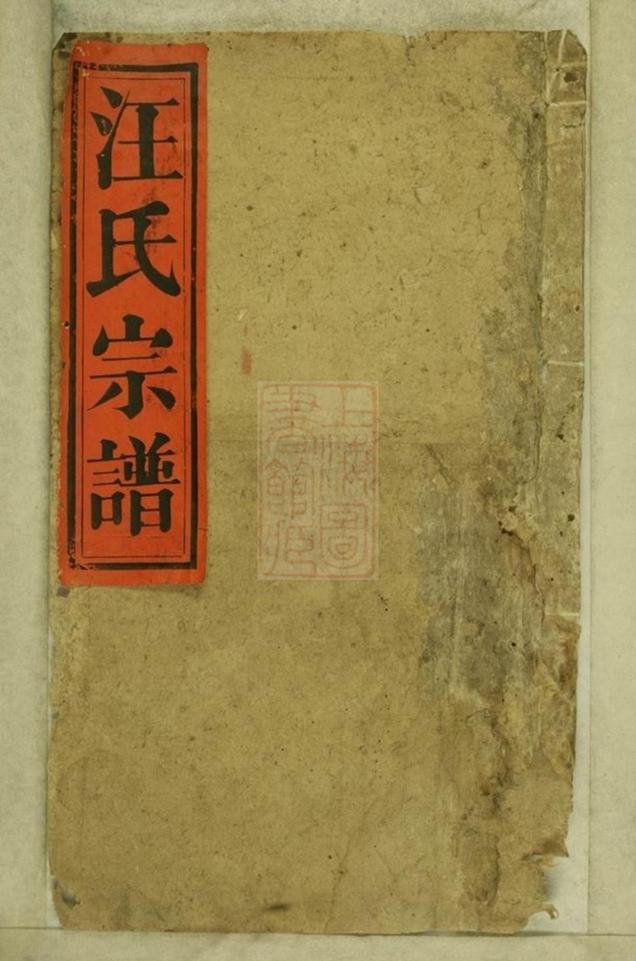 汪氏宗譜
上海圖
書館所